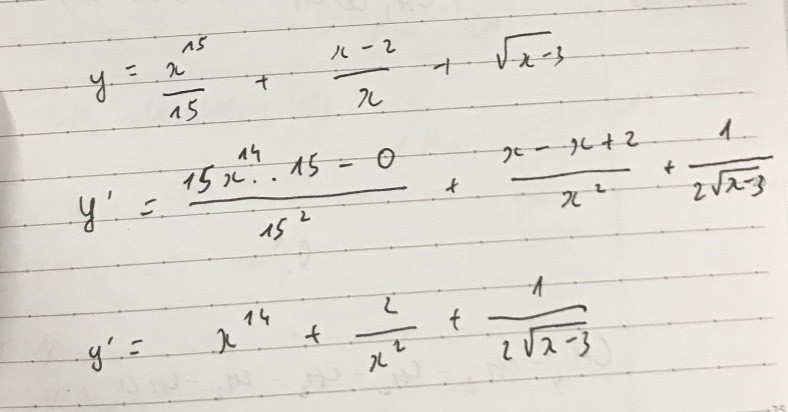 y = x^15/15 + (x - 2)/x + √(x-3)
y' = (15x^14 . 15 - 0)/15^2 + (x - x + 2)/x^2 + 1/(2√(x-3))
y' = x^14 + 2/x^2 + 1/(2√(x-3))